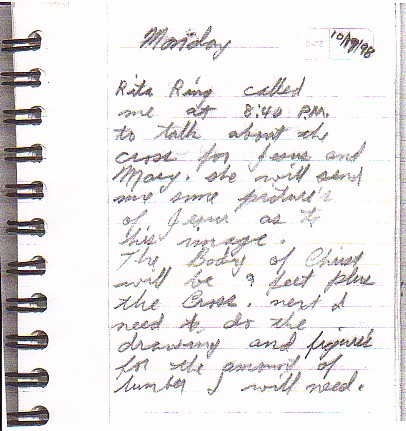 Monday
DATE 10/19/98
Rita Ring called
me at 8:40 P.M.
to talk about the
cross for Jesus and
Mary. she will send
me some picture's
of Jesus as to
his image.
The Body of Christ
will be 9 feet plus
the Cross. next I
need to do the
drawing and figures
for the amount of
lumber I will need.